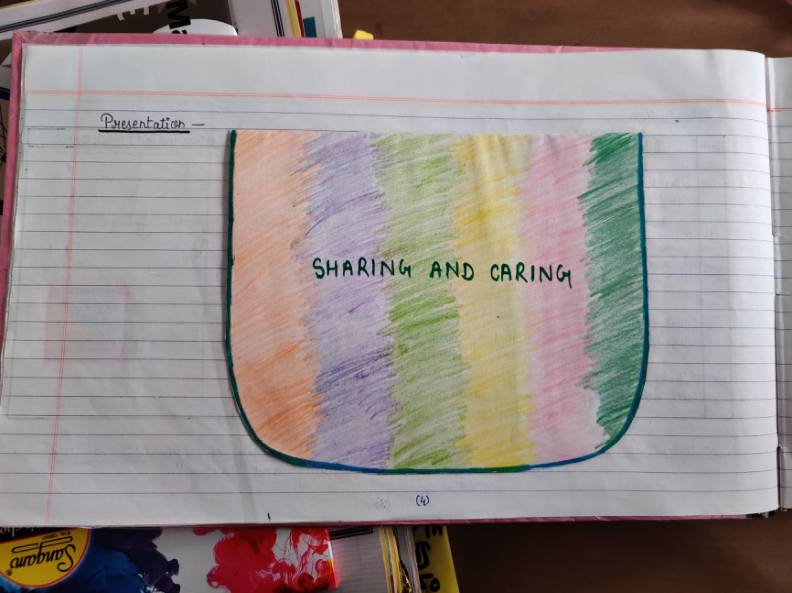 Presentation –
SHARING AND CARING
(4)
Sangam